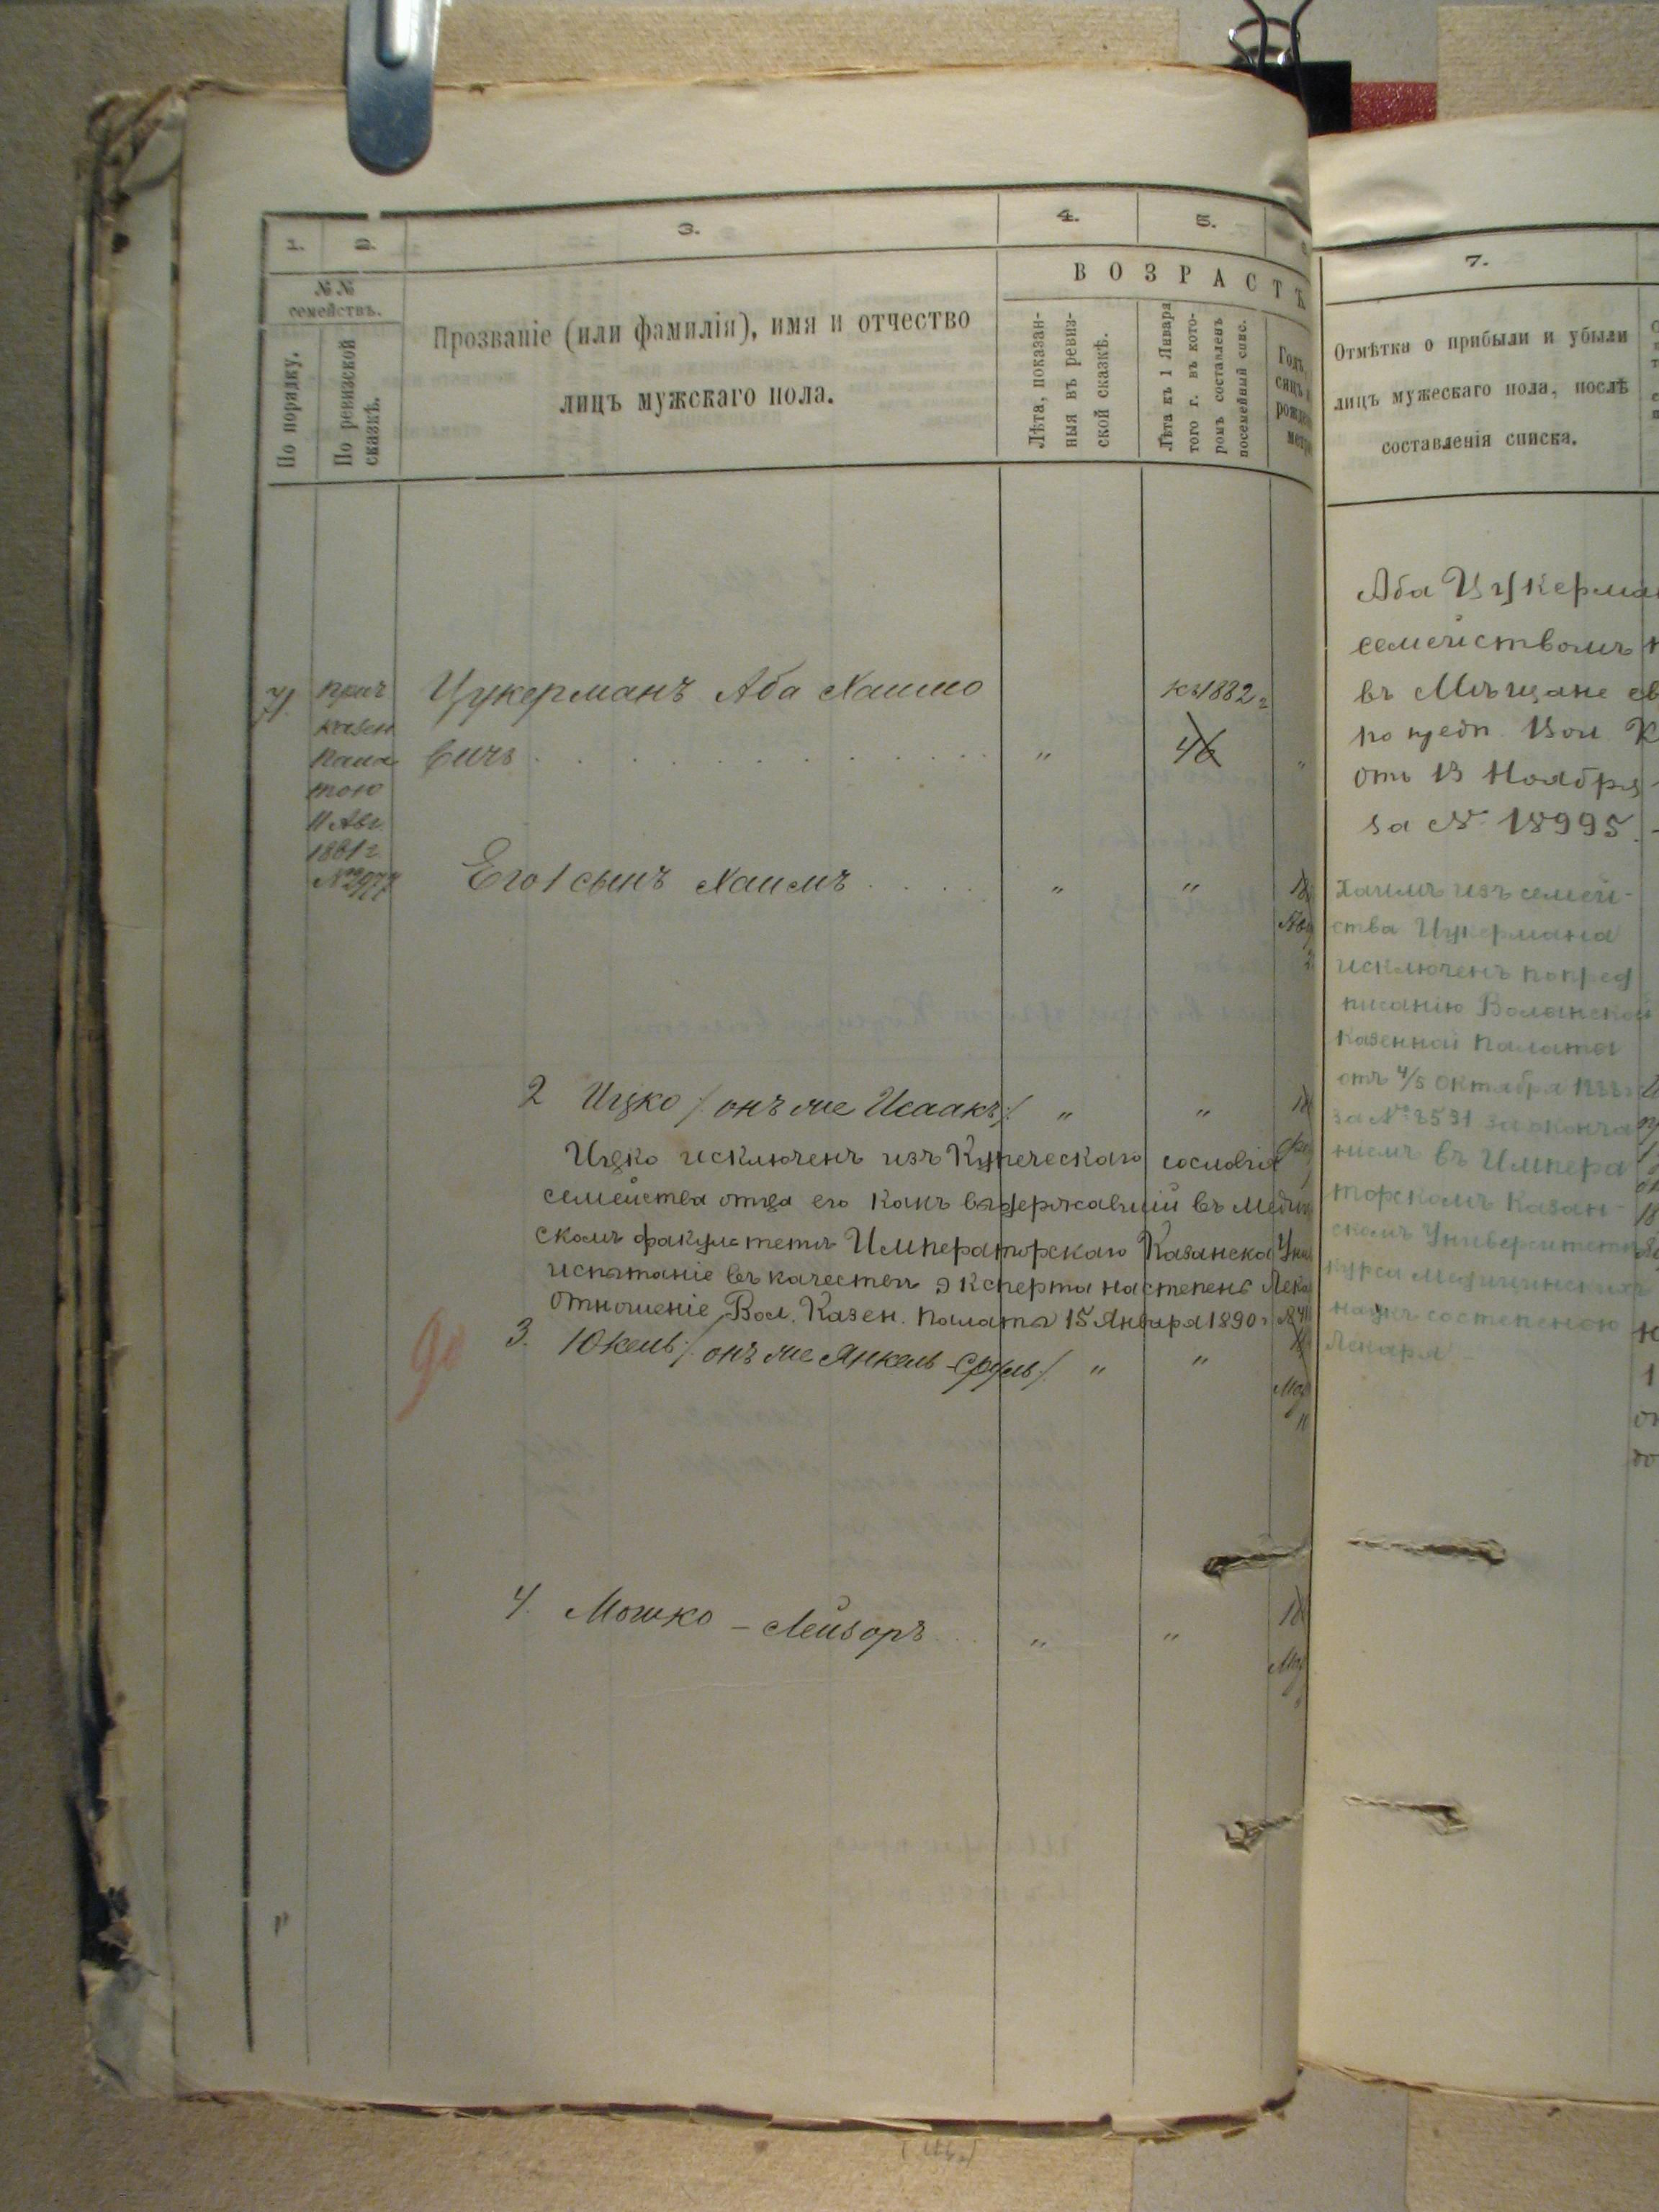 1.
2.
3.
4.
5.
№ №
семействъ.
По порядку.
По ревизской
сказкѣ.
Прозваніе (или фамилія), имя и отчество
лицъ мужскаго пола.
ВОЗРАСТЪ
Лѣта, показан-
ныя въ ревиз-
ской сказкѣ.
Лѣта къ 1 Января
того г. въ кото-
ромъ составленъ
посемейный спис.
Годъ,
7.
Отмѣтка о прибыли и убыли
лицъ мужескаго пола, послѣ
составленія списка.
прич
казен
пала
тою
11 Авг
1881 г
Цукерманъ Аба Хаимо
вичъ . . . . . . . . . . . . "
къ 1882 г
46
Его 1 сынъ Хаимъ . . . . . " "
2 Ицко /: онъ же Исаакъ :/ " "
Ицко исключенъ изъ Купеческаго сословія
семейства отца его какъ выдержавшій въ Медицин
скомъ факультетѣ Императорскаго Казанска Унив
испытаніе въ качествѣ эксперта на степень Лека
Отношеніе Вол. Казен. Палаты 15 Января 1890 г
3. Юкель /: онъ же Янкель-Сруль :/ " "
4. Мошко – Лейзоръ . . . " "
Аба Цукерман
семействомъ
въ Мѣщане
по предп. Вол К
отъ 13 Ноября
за № 18995.
Хаимъ изъ семей-
ства Цукермана
исключенъ по пред
писанію Волынской
Казенной Палаты
отъ 4/5 Октября
за № 2531 за оконча
ніемъ въ Импера
торскомъ Казан-
скомъ Университетѣ
курса Медицинскихъ
наукъ со степенью
Лекаря